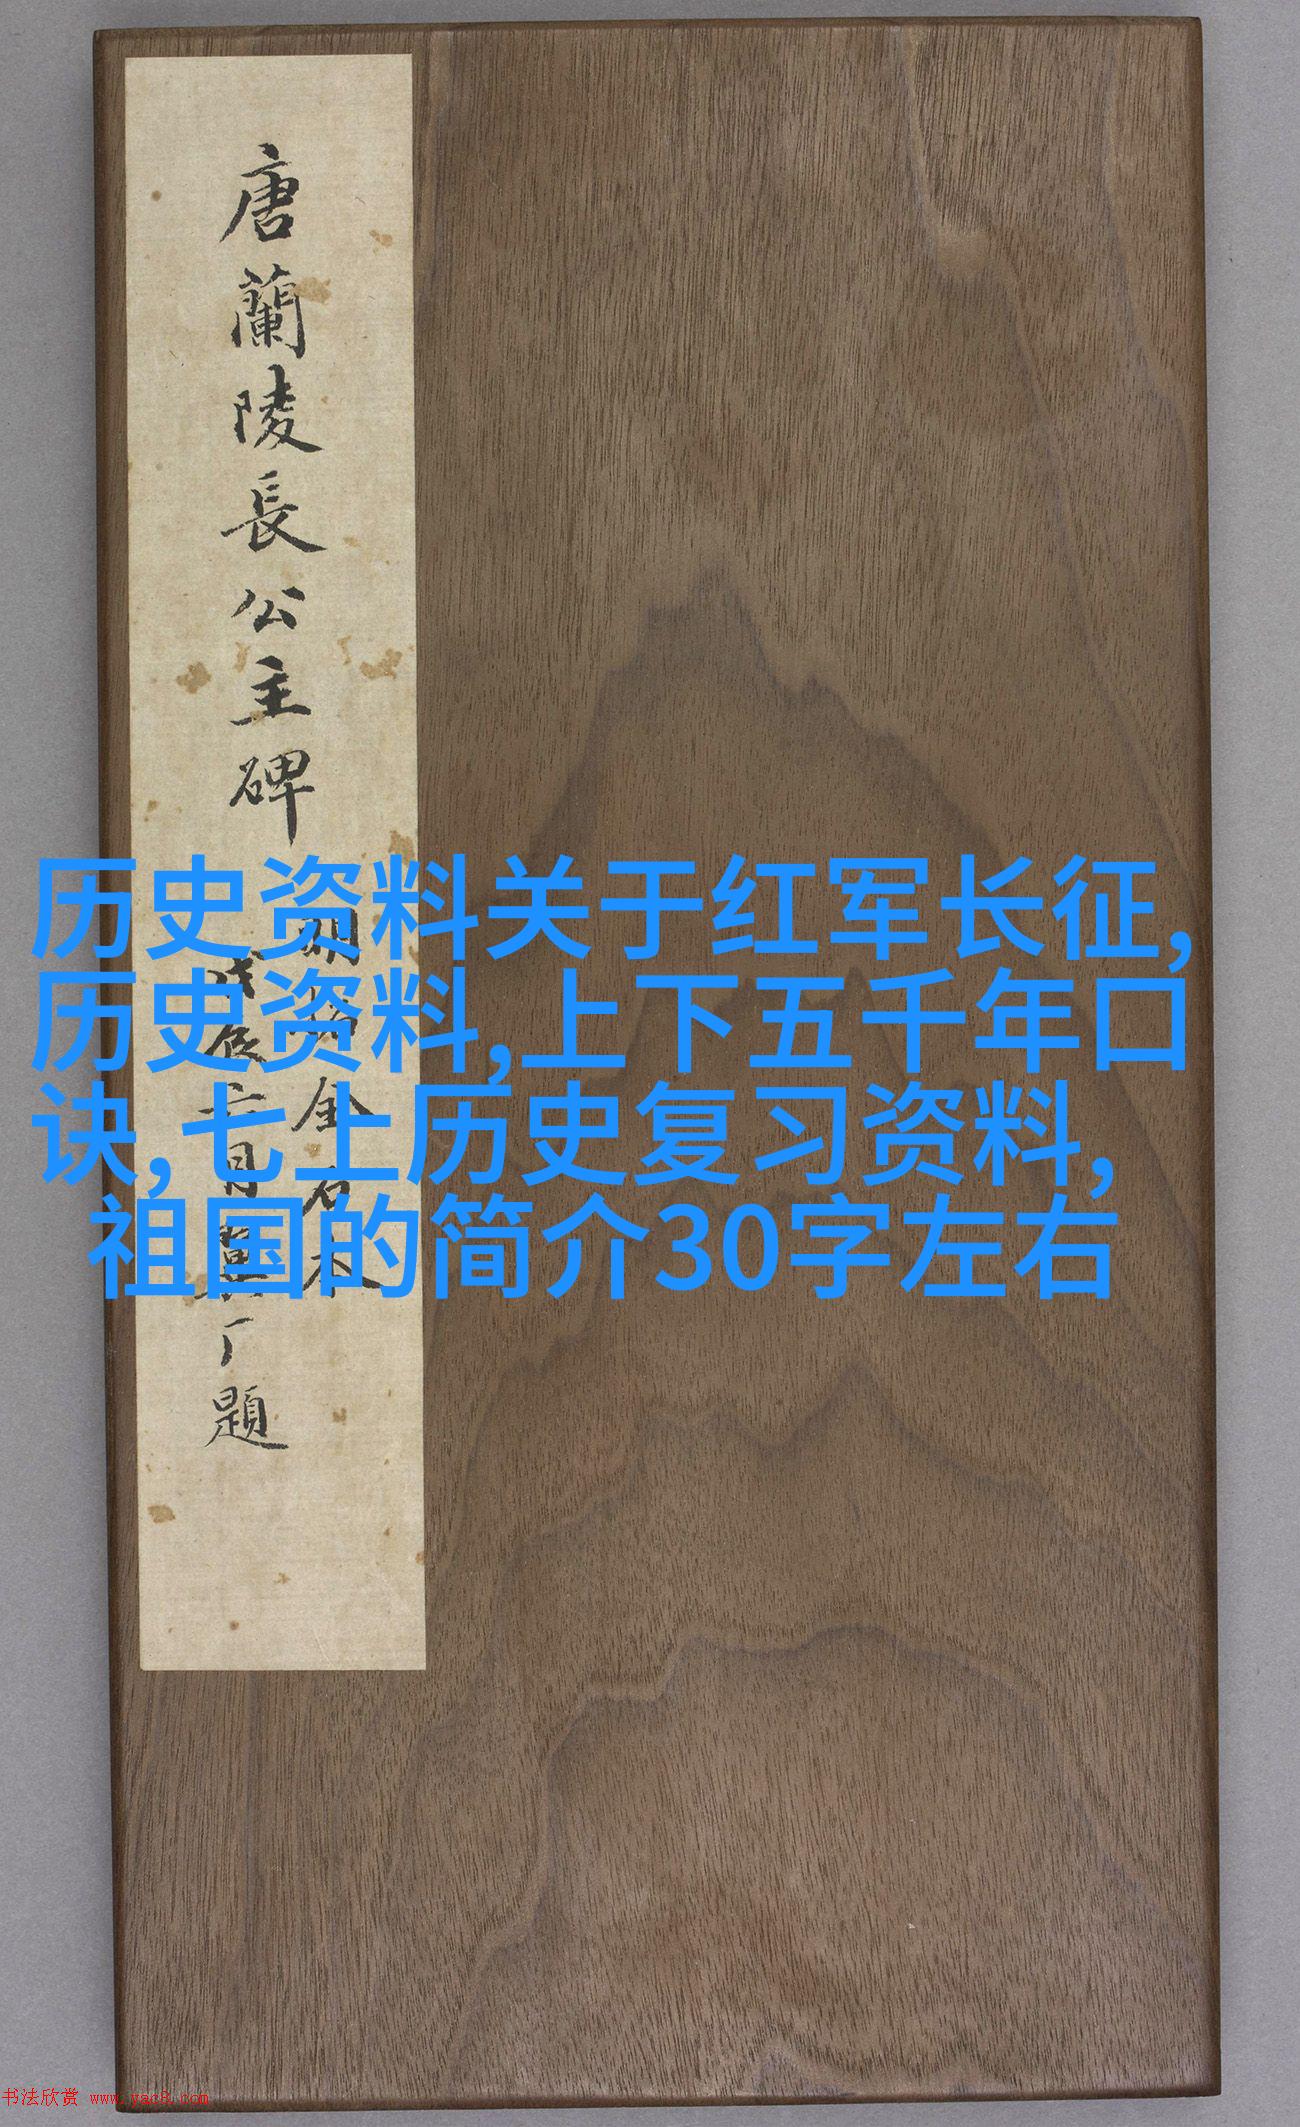 唐蘭陵長公主碑
历史资料关于红军长征,
历史资料,上下五千年口
诀,七上历史复习资料,
祖国的简介30字左右
金石
題
书法欣赏 www.yac8.com